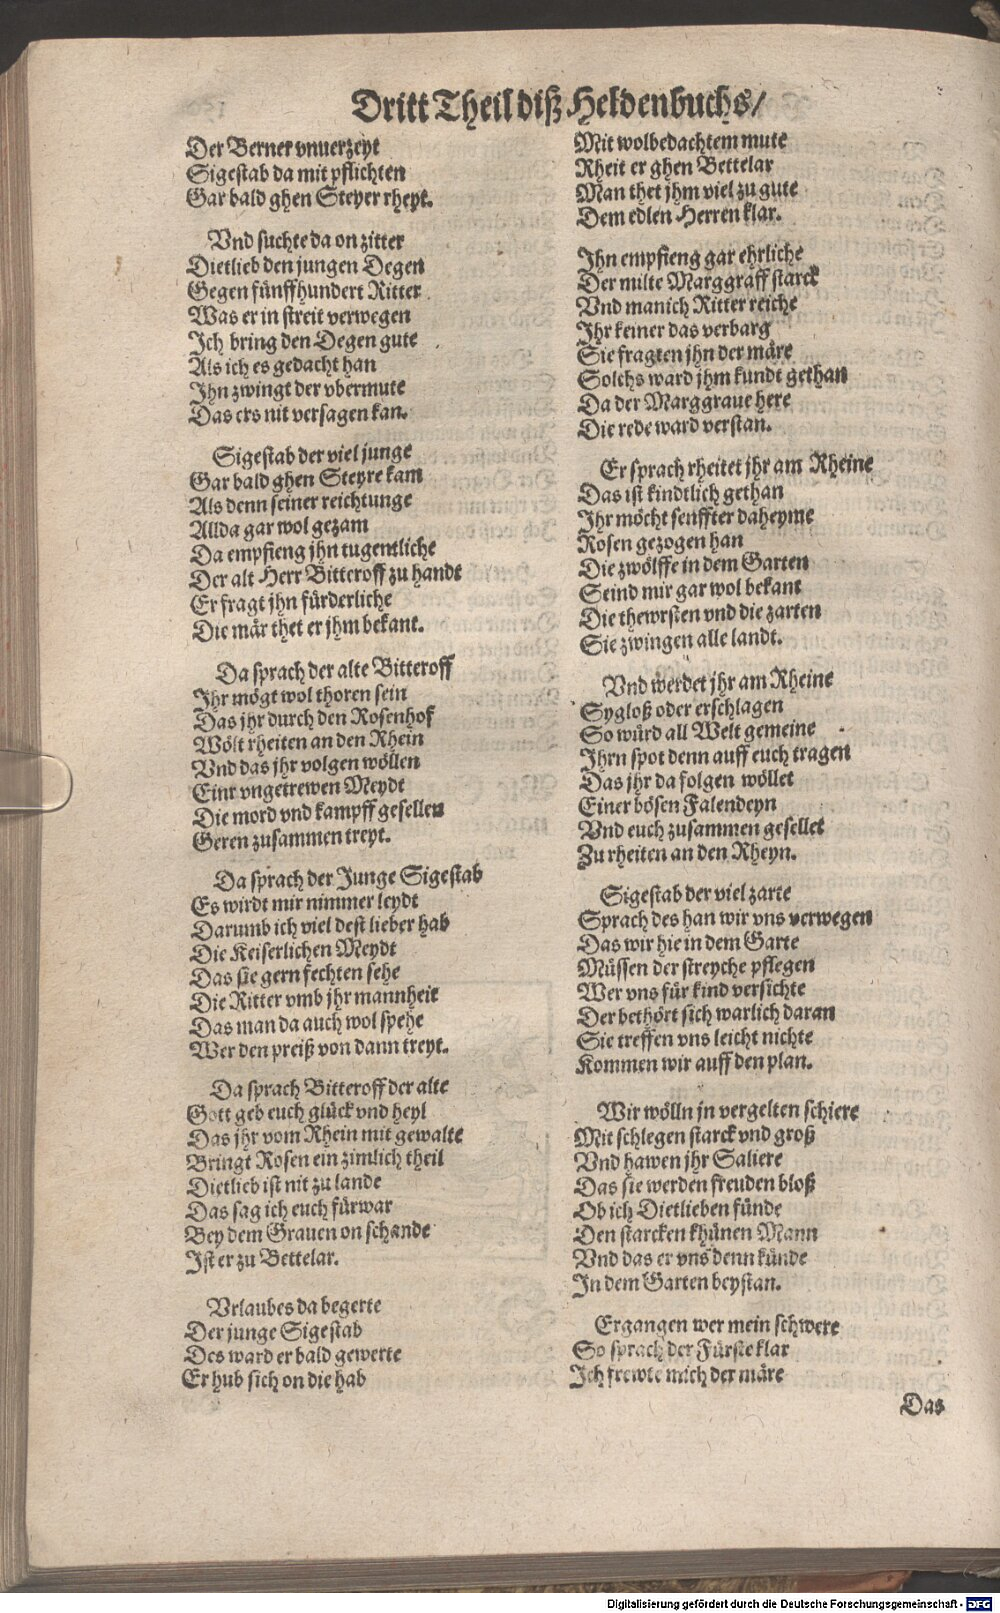 Dritt Theil diß Heldenbuchs/
Der Berner vnuerzeyt
Sigestab da mit pflichten
Gar bald ghen Steyer rheyt.
Vnd suchte da on zitter
Dietlieb den jungen Degen
Gegen fünffhundert Ritter
Was er in streit verwegen
Ich bring den Degen gute
Als ich es gedacht han
Ihn zwingt der vbermute
Das ers nit versagen kan.
Sigestab der viel junge
Gar bald ghen Steyre kam
Als denn seiner reichtunge
Allda gar wol gezam
Da empfieng jhn tugentliche
Der alt Herr Bitteroff zu handt
Er fragt jhn fürderliche
Die mär thet er jhm bekant.
Da sprach der alte Bitteroff
Ihr mögt wol thoren sein
Das jhr durch den Rosenhof
Wölt rheiten an den Rhein
Vnd das jhr volgen wöllen
Einr vngetrewen Meydt
Die mord vnd kampff gesellen
Geren zusammen treyt.
Da sprach der Junge Sigestab
Es wirdt mir nimmer leydt
Darumb ich viel dest lieber hab
Die Keiserlichen Meydt
Das sie gern fechten sehe
Die Ritter vmb jhr mannheit
Das man da auch wol spehe
Wer den preiß von dann treyt.
Da sprach Bitteroff der alte
Gott geb euch glück vnd heyl
Das jhr vom Rhein mit gewalte
Bringt Rosen ein zimlich theil
Dietlieb ist nit zu lande
Das sag ich euch fürwar
Bey dem Grauen on schande
Ist er zu Bettelar.
Vrlaubes da begerte
Der junge Sigestab
Des ward er bald gewerte
Er hub sich on die hab
Mit wolbedachtem mute
Rheit er ghen Bettelar
Man thet jhm viel zu gute
Dem edlen Herren klar.
Ihn empfieng gar ehrliche
Der milte Marggraff starck
Vnd manich Ritter reiche
Ihr keiner das verbarg
Sie fragten jhn der märe
Solchs ward jhm kundt gethan
Da der Marggraue here
Die rede ward verstan.
Er sprach rheitet jhr am Rheine
Das ist kindtlich gethan
Ihr möcht senffter daheyme
Rosen gezogen han
Die zwölffe in dem Garten
Seind mir gar wol bekant
Die thewrsten vnd die zarten
Sie zwingen alle landt.
Vnd werdet jhr am Rheine
Sygloß oder erschlagen
So würd all Welt gemeine
Ihrn spot denn auff euch tragen
Das jhr da folgen wöllet
Einer bösen Falendeyn
Vnd euch zusammen gesellet
Zu rheiten an den Rheyn.
Sigestab der viel zarte
Sprach des han wir vns verwegen
Das wir hie in dem Garte
Müssen der streyche pflegen
Wer vns für kind versichte
Der bethört sich warlich daran
Sie treffen vns leicht nichte
Kommen wir auff den plan.
Wir wölln jn vergelten schiere
Mit schlegen starck vnd groß
Vnd hawen jhr Saliere
Das sie werden freuden bloß
Ob ich Dietlieben fünde
Den starcken khünen Mann
Vnd das er vns denn künde
In dem Garten beystan.
Ergangen wer mein schwere
So sprach der Fürste klar
Ich frewte mich der märe
Das
Digitalisierung gefördert durch die Deutsche Forschungsgemeinschaft - DFG